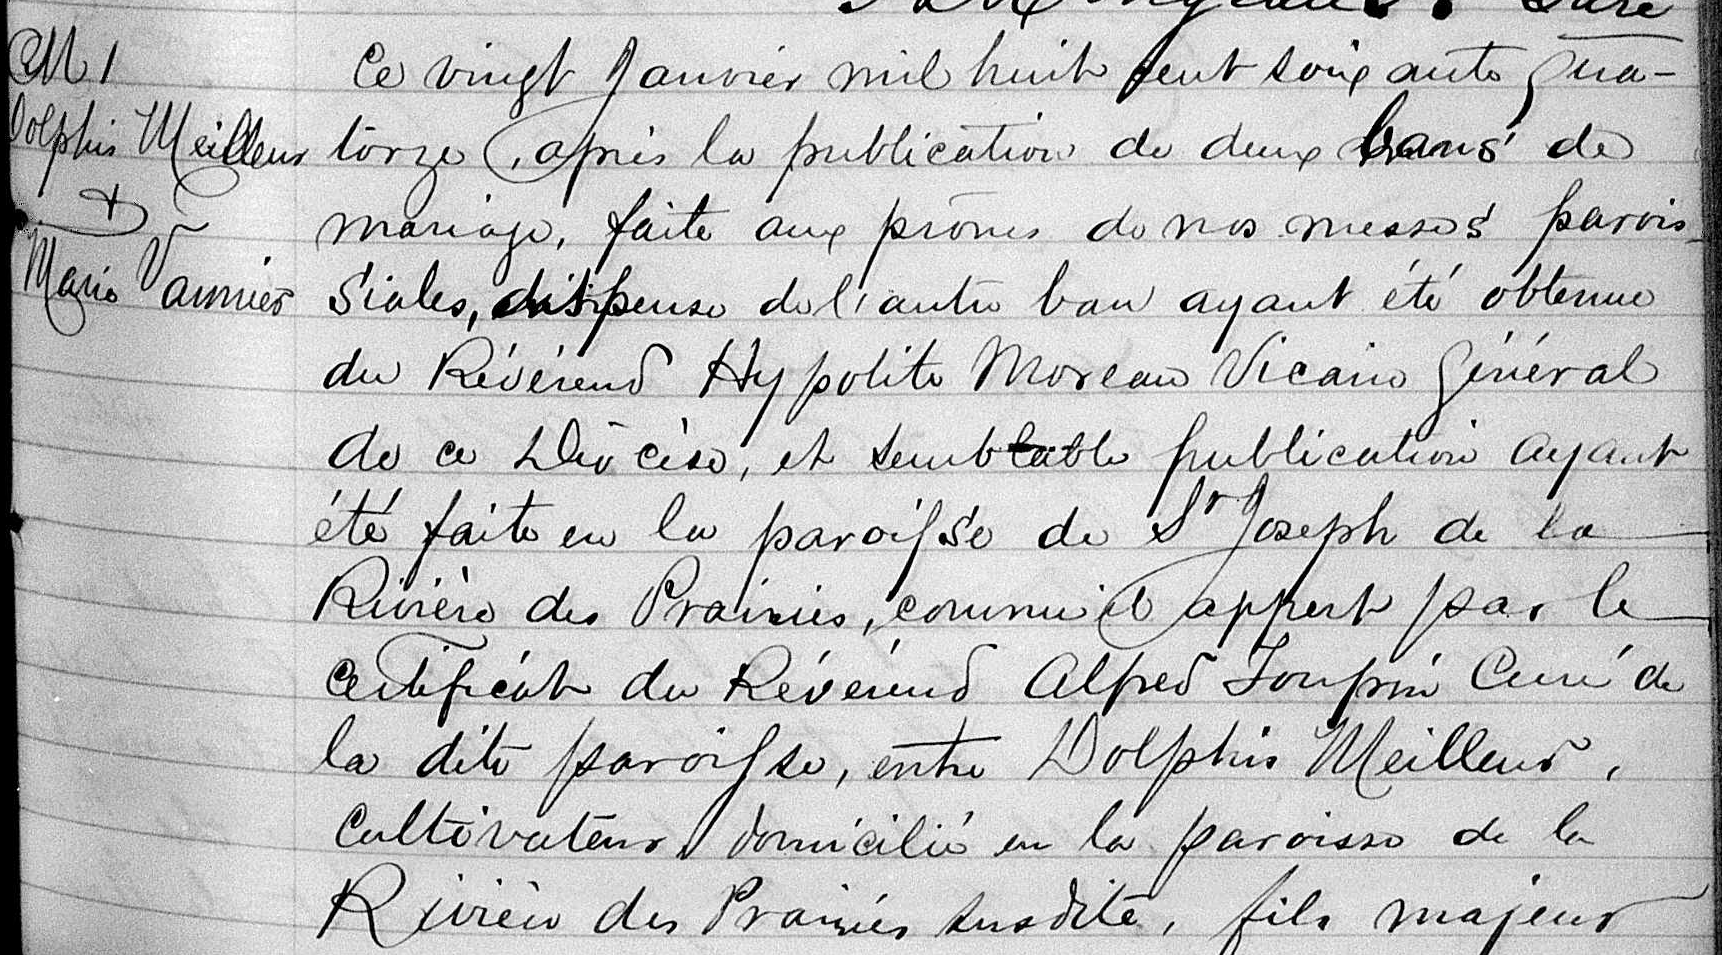 Curé
M 1
Dolphis Meilleur
&
Marie Vannier
Ce vingt Janvier mil huit cent soixante Qua-
torze, après la publication de deux bans de
mariage, faite aux prônes de nos messes parois-
siales, dispense de l'autre ban ayant été obtenue
du Révérend Hypolite Moreau Vicaire Général
de ce Diocèse, et semblable publication ayant
été faite en la paroisse de St Joseph de la
Rivière des Prairies, comme il appert par le
certificat du Révérend Alfred Toupin Curé de
la dite paroisse, entre Dolphis Meilleur,
cultivateur domicilié en la paroisse de la
Rivière des Prairies susdite, fils majeur